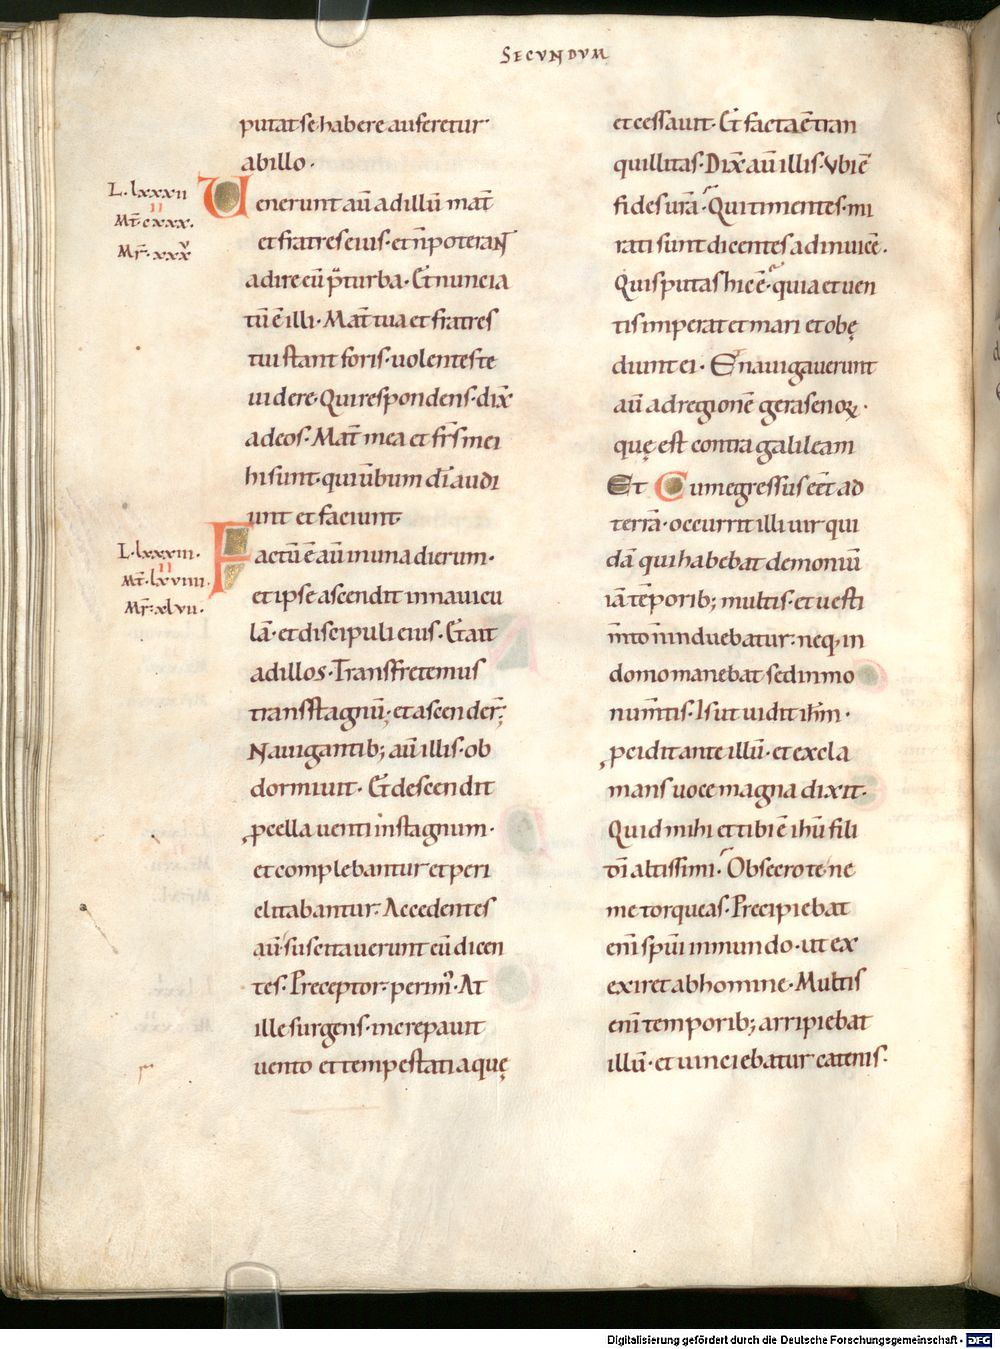 SECUNDUM
putat se habere auferetur
ab illo.
L. lxxxii
II
Mt̄. cxxx.
Mr̄. xxxv
Uenerunt aū ad illū mat̄
et fratres eius. et n̄ poterant
adire eū p̄ turba. Et nuncia
tū ē illi. Mat̄ tua et fratres
tui stant foris. uolentes te
uidere. Qui respondens. dix̄
ad eos. Mat̄ mea et fr̄s mei
hi sunt. qui ūbum dī audi
unt et faciunt.
L. lxxxiii.
II
Mt̄. lxviiii.
Mr̄. xlvii.
Factū ē aū in una dierum.
et ipse ascendit in nauicu
lā. et discipuli eius. Et ait
ad illos. Transfretemus
trans stagnū; et ascender̄;
Nauigantib; aū illis. ob
dormiuit. Et descendit
ꝓcella uenti in stagnum.
et complebantur et peri
clitabantur. Accedentes
aū. suscitauerunt eū dicen
tes. Preceptor. perim̄. At
ille surgens. increpauit
uento et tempestati aquę
et cessauit. Et facta ē tran
quillitas. Dix̄ aū illis. Vbi ē
fides ur̄a. Qui timentes. mi
rati sunt dicentes adinuicē.
Quis putas hic ē. quia et uen
tis imperat et mari et obę
diunt ei. Et nauigauerunt
aū ad regionē gerasenoꝝ.
quę est contra galileam
Et Cum egressus eēt ad
terrā. occurrit illi uir qui
dā qui habebat demoniū
iā tēporib; multis. et uesti
m̄to n̄ induebatur. neq; in
domo manebat sed in mo
num̄tis. Is ut uidit ih̄m.
ꝓcidit ante illū. et excla
mans uoce magna dixit.
Quid mihi et tibi ē ihū fili
dī altissimi. Obsecro te ne
me torqueas. Precipiebat
enī spūi inmundo. ut ex
exiret ab homine. Multis
enī temporib; arripiebat
illū. et uinciebatur catenis.
Digitalisierung gefördert durch die Deutsche Forschungsgemeinschaft - DFG